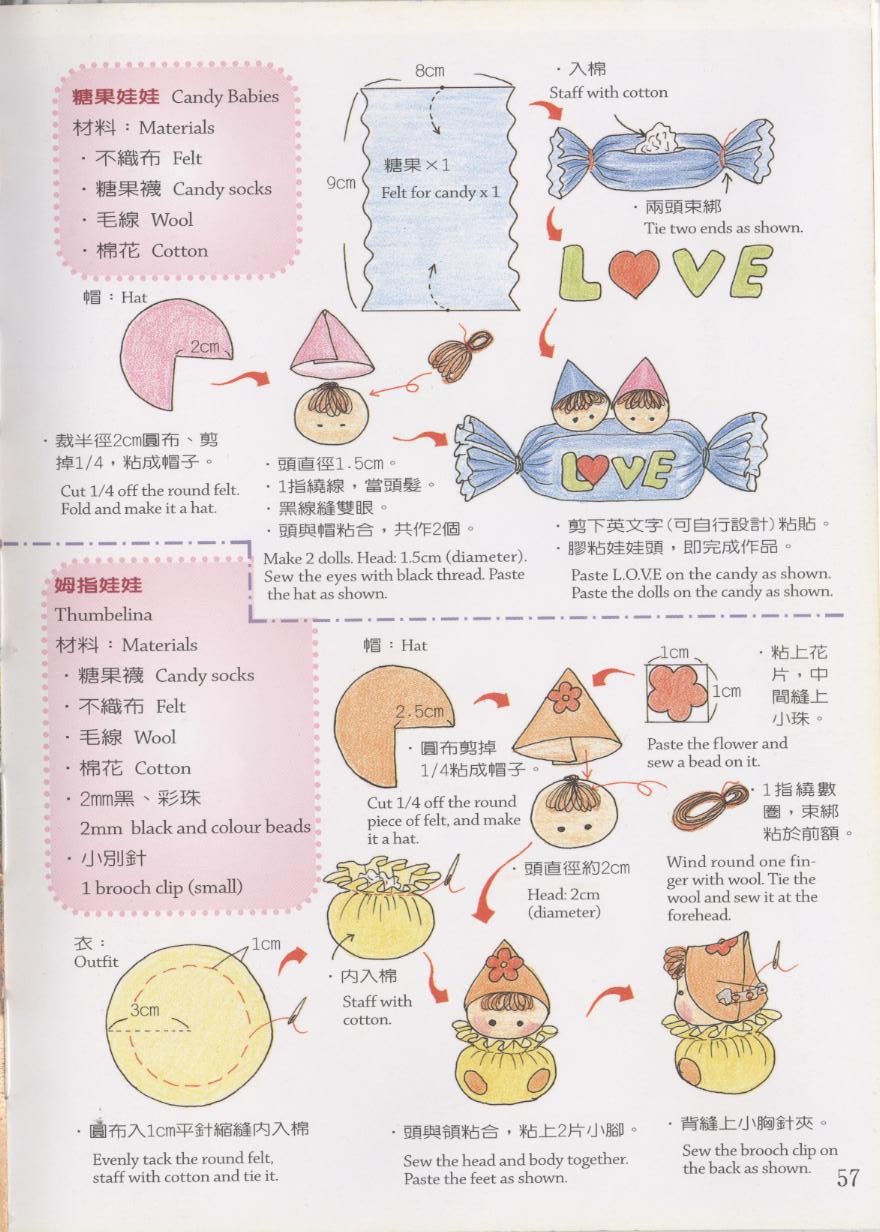 糖果娃娃 Candy Babies
材料：Materials
・不織布 Felt
・糖果襪 Candy socks
・毛線 Wool
・棉花 Cotton
8cm
9cm
糖果×1
Felt for candy x 1
・入棉
Staff with cotton
・兩頭束綁
Tie two ends as shown.
LOVE
帽：Hat
2cm
・裁半徑2cm圓布、剪
掉1/4，粘成帽子。
Cut 1/4 off the round felt.
Fold and make it a hat.
・頭直徑1.5cm。
・1指繞線，當頭髮。
・黑線縫雙眼。
・頭與帽粘合，共作2個。
Make 2 dolls. Head: 1.5cm (diameter).
Sew the eyes with black thread. Paste
the hat as shown.
LOVE
・剪下英文字(可自行設計)粘貼。
・膠粘娃娃頭，即完成作品。
Paste L.O.V.E on the candy as shown.
Paste the dolls on the candy as shown.
姆指娃娃
Thumbelina
材料：Materials
・糖果襪 Candy socks
・不織布 Felt
・毛線 Wool
・棉花 Cotton
・2mm黑、彩珠
2mm black and colour beads
・小別針
1 brooch clip (small)
帽：Hat
2.5cm
・圓布剪掉
1/4粘成帽子。
Cut 1/4 off the round
piece of felt, and make
it a hat.
1cm
1cm
・粘上花
片，中
間縫上
小珠。
Paste the flower and
sew a bead on it.
・1指繞數
圈，束綁
粘於前額。
Wind round one fin-
ger with wool. Tie the
wool and sew it at the
forehead.
・頭直徑約2cm
Head: 2cm
(diameter)
衣：
Outfit
1cm
3cm
・內入棉
Staff with
cotton.
・圓布入1cm平針縮縫內入棉
Evenly tack the round felt,
staff with cotton and tie it.
・頭與領粘合，粘上2片小腳。
Sew the head and body together.
Paste the feet as shown.
・背縫上小胸針夾。
Sew the brooch clip on
the back as shown.
57